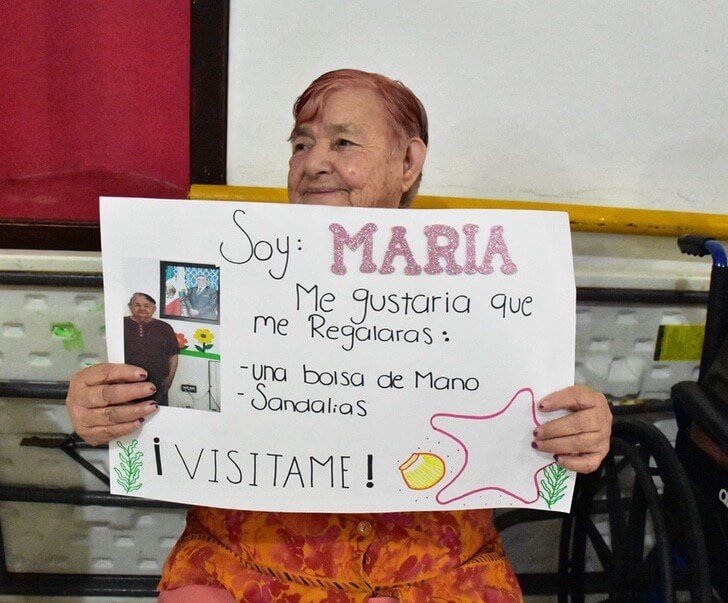 Soy: MARIA
Me gustaria que
me Regalaras:
-una bolsa de Mano
-Sandalias
¡VISITAME!